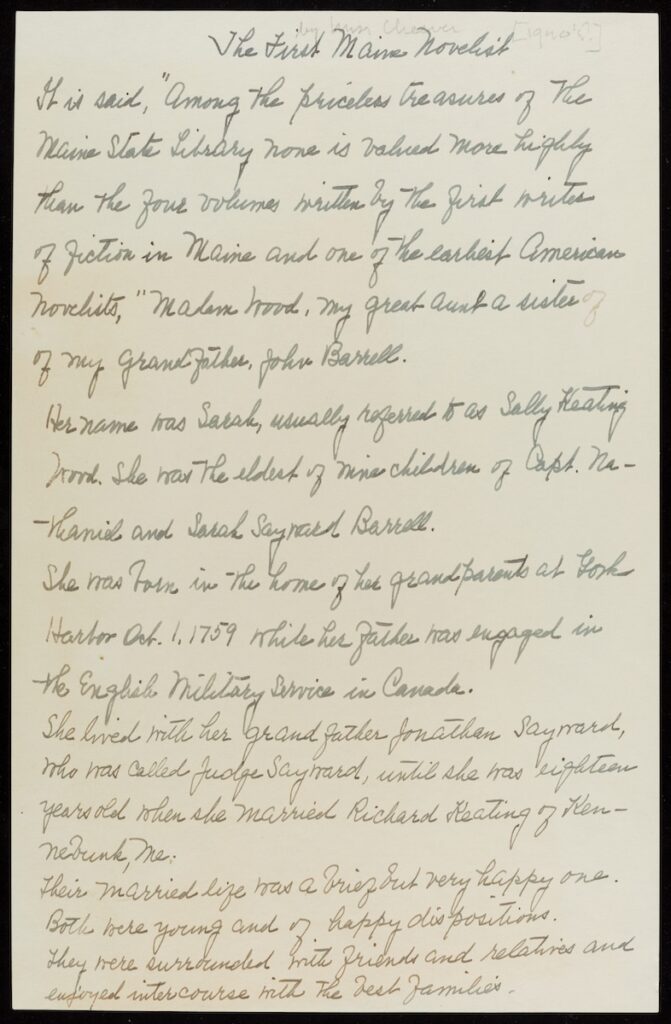 by Miss Cheever
The First Maine Novelist
It is said, "Among the priceless treasures of the
Maine State Library none is valued more highly
than the four volumes written by the first writer
of fiction in Maine and one of the earliest American
novelists," Madam Wood, my great aunt a sister of
of my grandfather, John Barrell.
Her name was Sarah, usually referred to as Sally Keating
Wood. She was the eldest of nine children of Capt. Na-
-thaniel and Sarah Sayward Barrell.
She was born in the home of her grandparents at York
Harbor Oct. 1, 1759 while her father was engaged in
the English Military Service in Canada.
She lived with her grandfather Jonathan Sayward,
who was called Judge Sayward, until she was eighteen
years old when she married Richard Keating of Ken-
nebunk, Me.
Their married life was a brief but very happy one.
Both were young and of happy dispositions.
They were surrounded with friends and relatives and
enjoyed intercourse with the best families.